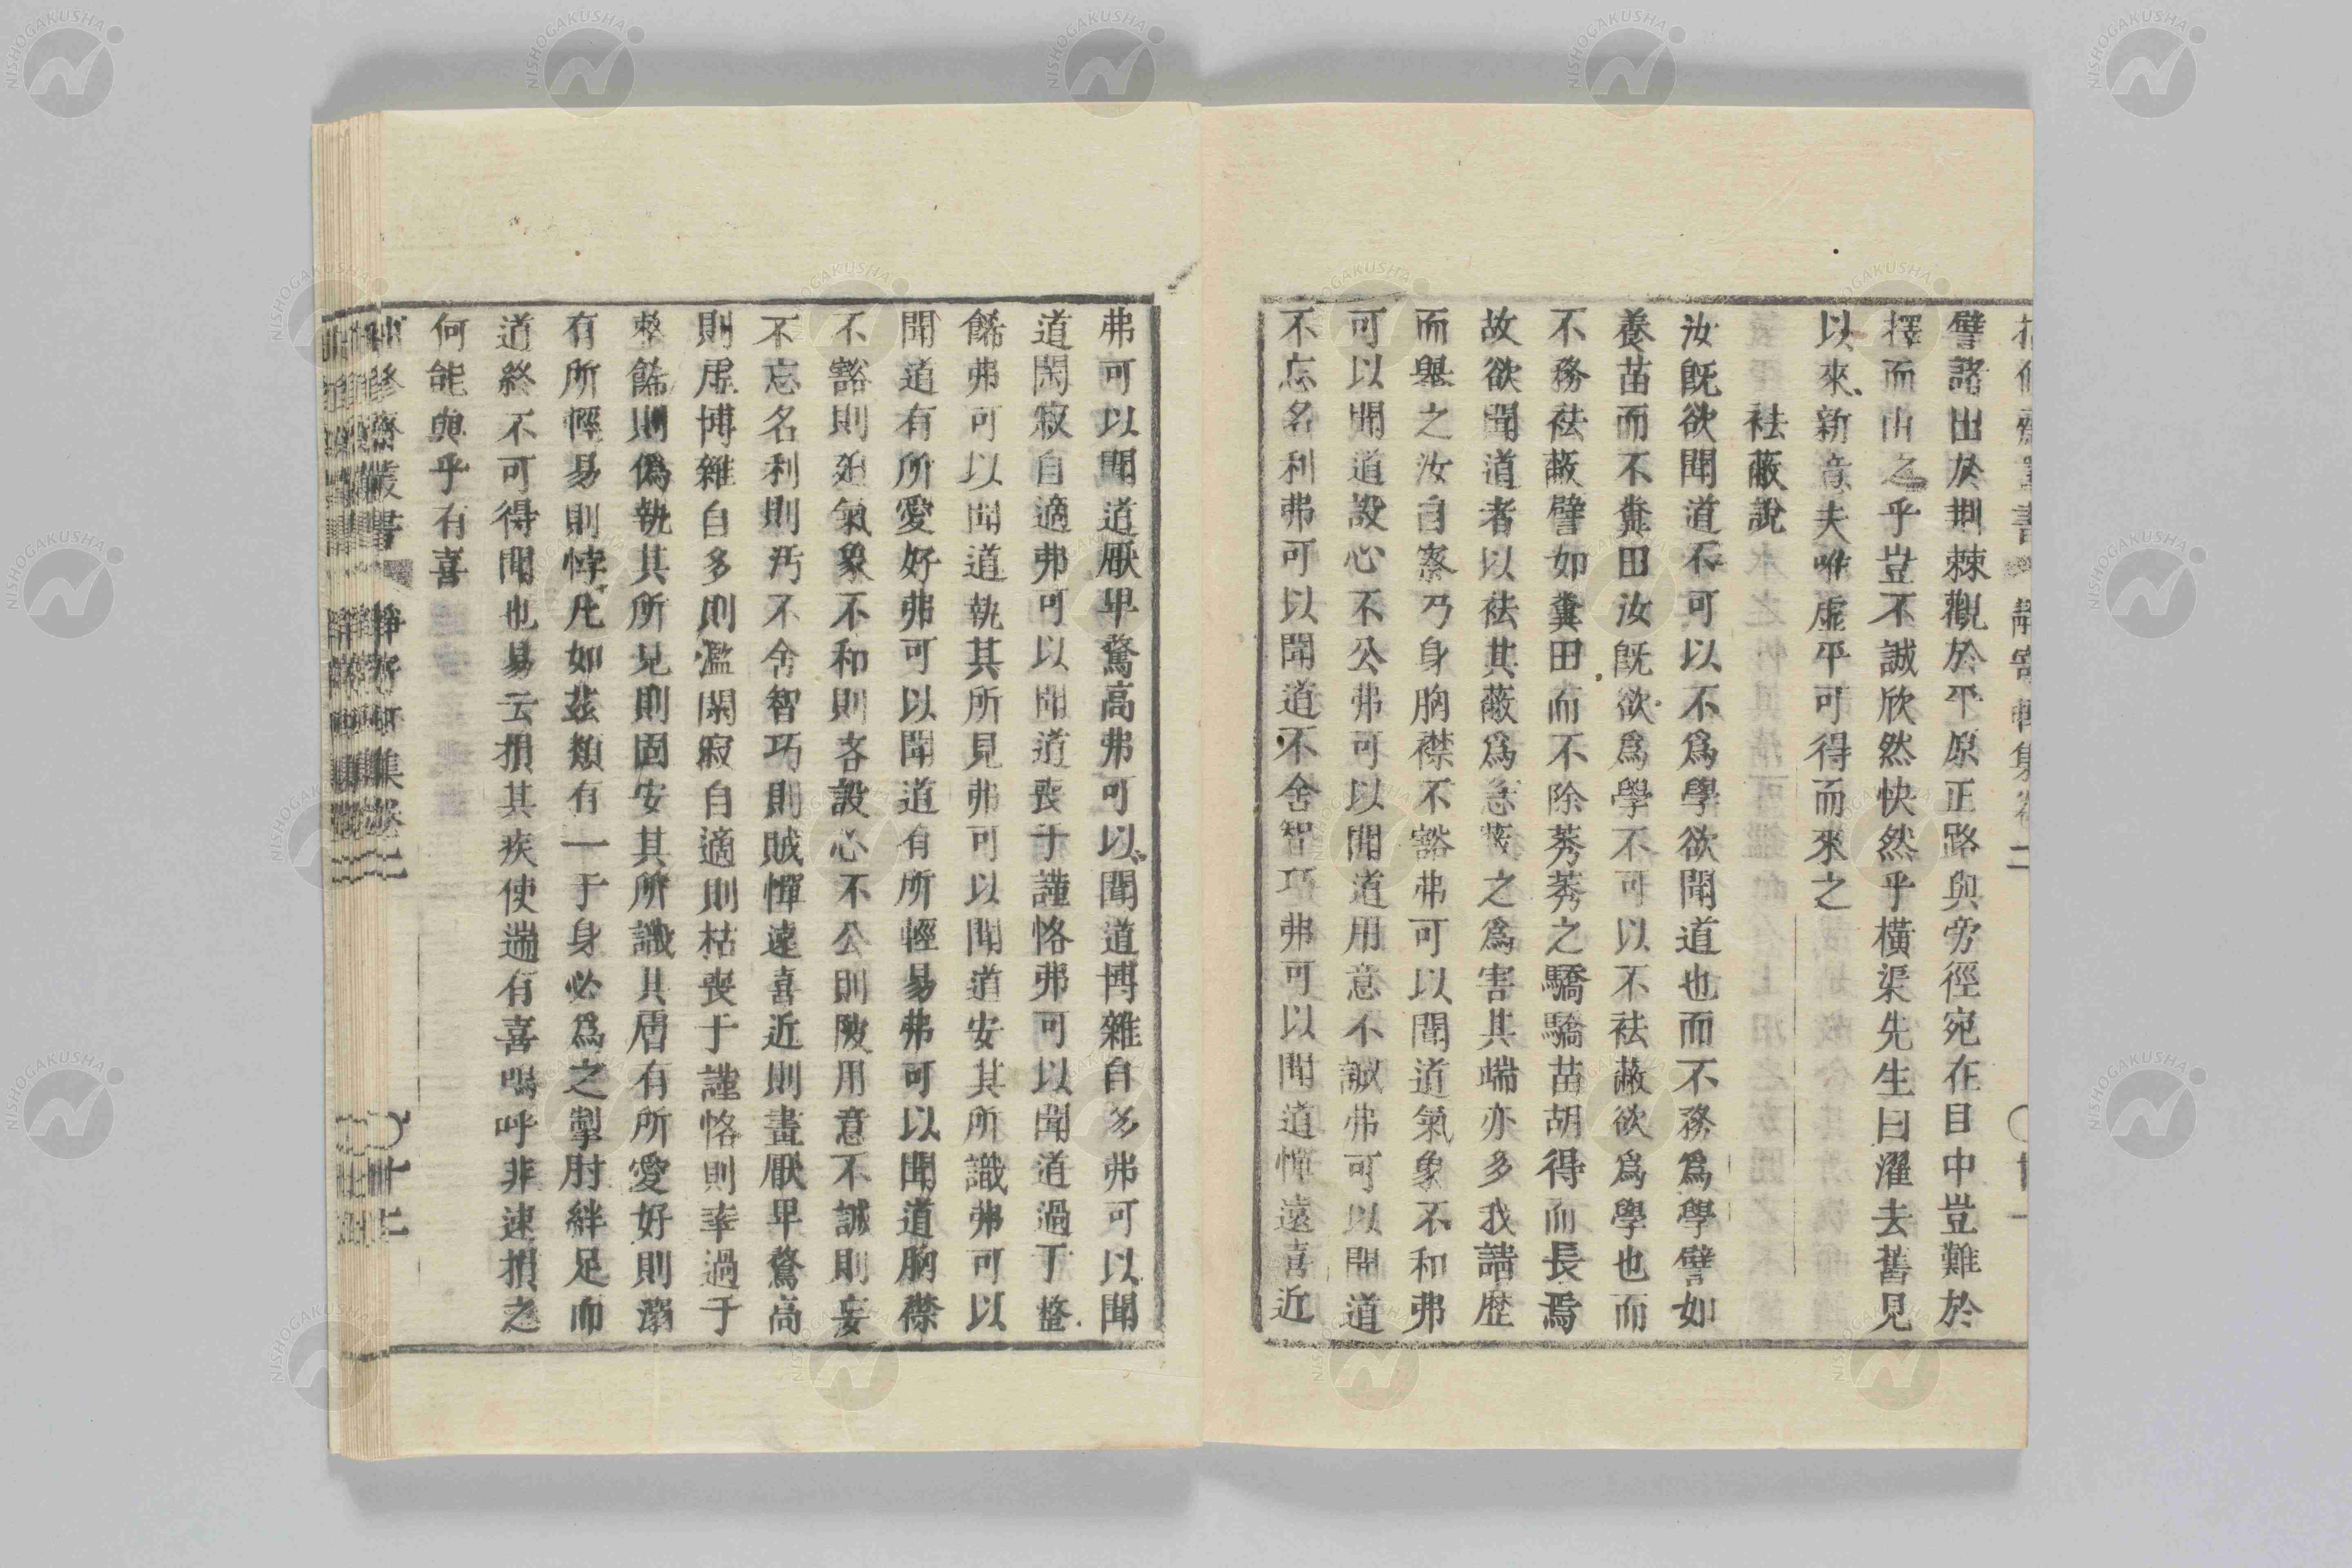 譬諸出於荆棘觀於平原正路與旁徑宛在目中豈難於
擇而由之乎豈不誠欣然快然乎橫渠先生曰濯去舊見
以來新意夫唯虛平可得而來之
袪蔽說
汝旣欲聞道不可以不爲學欲聞道也而不務爲學譬如
養苗而不糞田汝旣欲爲學不可以不袪蔽欲爲學也而
不務袪蔽譬如糞田而不除莠莠之驕驕苗胡得而長焉
故欲聞道者以袪其蔽爲急蔽之爲害其端亦多我請歷
而舉之汝自察乃身胸襟不豁弗可以聞道氣象不和弗
可以聞道設心不公弗可以聞道用意不誠弗可以聞道
不忘名利弗可以聞道不舍智巧弗可以聞道憚遠喜近
弗可以聞道厭卑驁高弗可以聞道博雜自多弗可以聞
道閑寂自適弗可以聞道喪于謹恪弗可以聞道過于整
飭弗可以聞道執其所見弗可以聞道安其所識弗可以
聞道有所愛好弗可以聞道有所輕易弗可以聞道胸襟
不豁則廹氣象不和則吝設心不公則陂用意不誠則妄
不忘名利則汚不舍智巧則賊憚遠喜近則畫厭卑驁高
則虛博雜自多則濫閑寂自適則枯喪于謹恪則牽過于
整飭則僞執其所見則固安其所識其唐有所愛好則溺
有所輕易則悖凡如茲類有一于身必爲之掣肘絆足而
道終不可得聞也易云損其疾使遄有喜嗚呼非速損之
何能與乎有喜
靜寄軒集卷二 十二